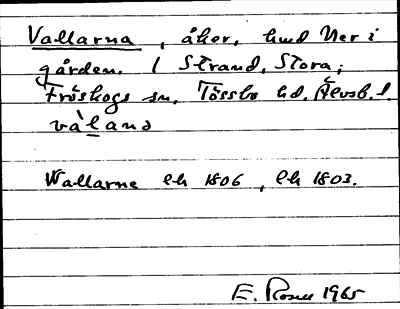 Vallarna, åker, hmd Ner i
gården. 1 Strand, Stora;
Fröskogs sn. Tössbo hd. Älvsb. l.
vàlana
Wallarne lh 1806, lh 1803.
E. Rosell 1965